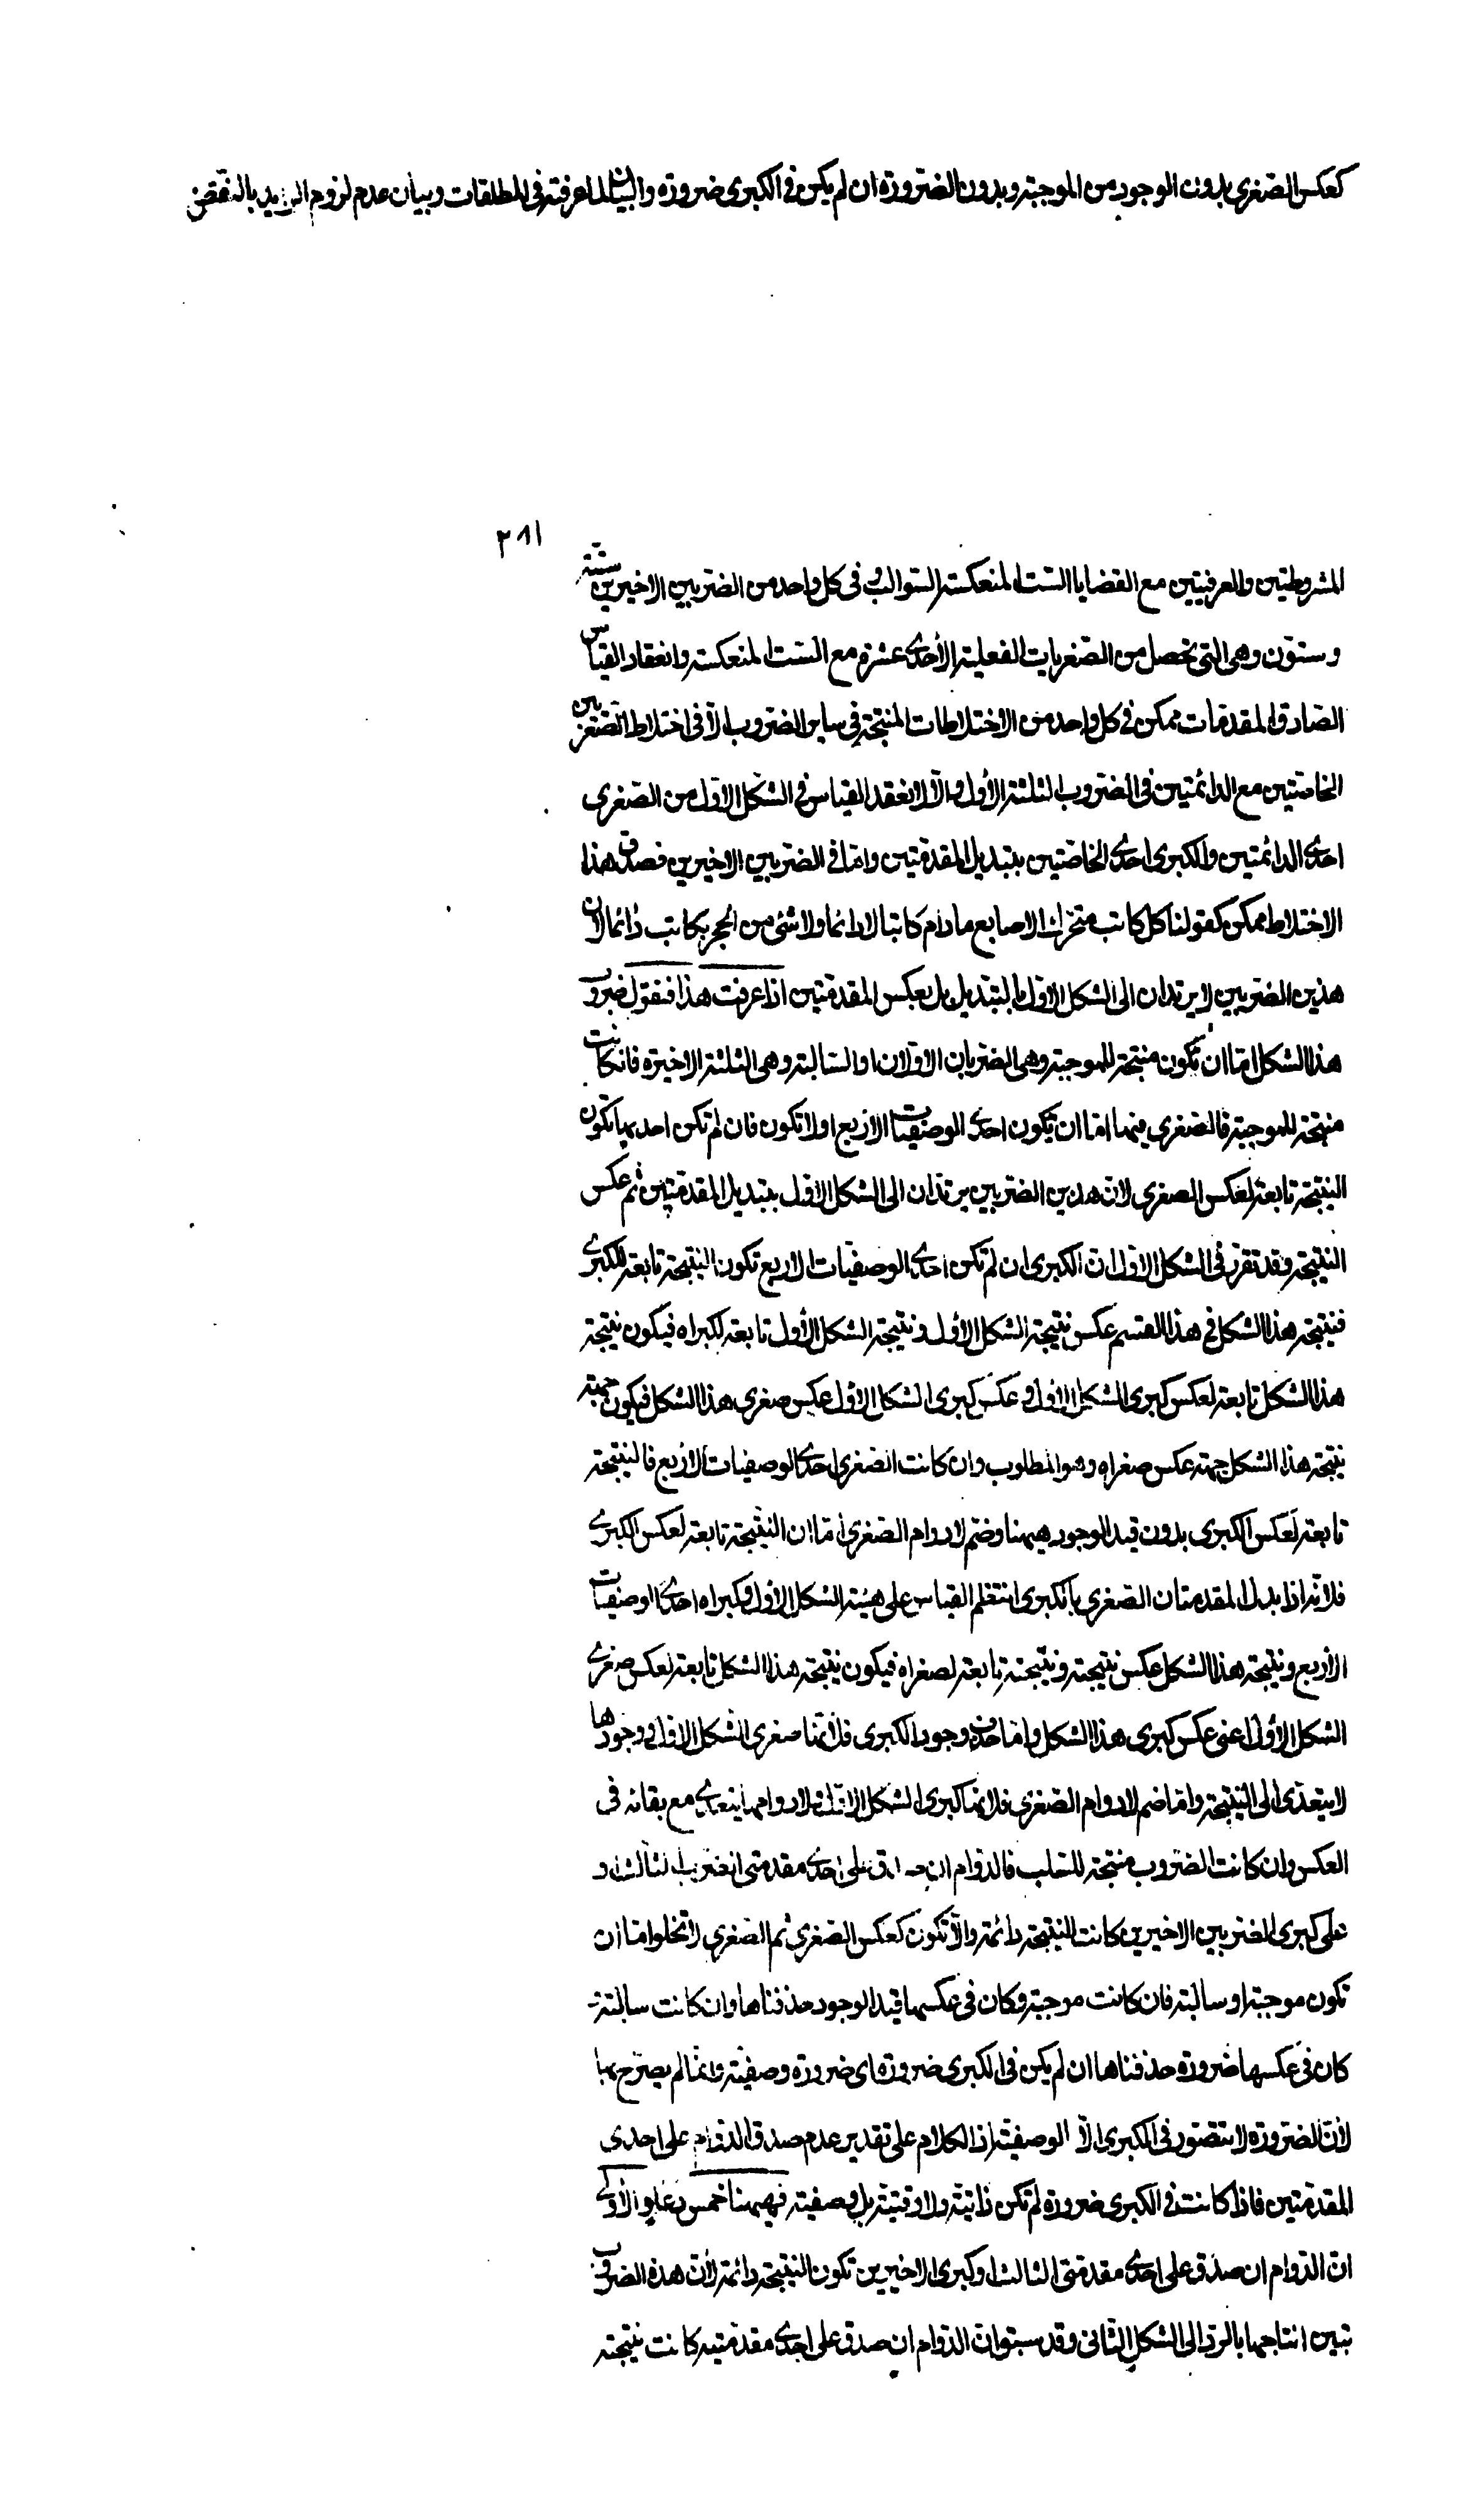 كعكس الصغرى بدون الوجود من الموجبة وبدون الضرورة ان لم يكن فى الكبرى ضرورة والبيان لما عرفته فى المطلقات وبيان عدم لزوم المزيد بالنقض
٢٨١
المشروطتين والعرفيتين مع القضايا الست المنعكسة السوالب و فى كل واحد من الضربين الاخيرين ستة
وستون وهى التى تحصل من الصغريات الفعلية الأحدى عشرة مع الست المنعكسة وانعقاد القياس
الصادق المقدمات ممكن فى كل واحد من الاختلاطات المنتجة فى ساير الضروب الا فى اختلاط الصغريين
الخاصتين مع الدائمتين فى الضروب الثلثة الأول والا لانعقد القياس فى الشكل الاول من الصغرى
احدى الدائمتين والكبرى احدى الخاصتين بتبديل المقدمتين واما فى الضربين الاخيرين فصدق هذا
الاختلاط ممكن كقولنا كل كاتب متحرك الاصابع مادام كاتبا لا دائما ولا شئ من الحجر بكاتب دائما لان
هذين الضربين لا يرتدان الى الشكل الاول بالتبديل بل بعكس المقدمتين اذا عرفت هذا فنقول ضروب
هذا الشكل اما ان تكون منتجة للموجبة وهى الضربان الاولان او السالبة وهى الثلثة الاخيرة فان كانت
منتجة للموجبة فالصغرى فيهما اما ان تكون احدى الوصفيات الاربع او لا تكون فان لم تكن احديها تكون
النتيجة تابعة لعكس الصغرى لان هذين الضربين يرتدان الى الشكل الاول بتبديل المقدمتين ثم عكس
النتيجة وقد تقرر فى الشكل الاول ان الكبرى ان لم تكن احدى الوصفيات الاربع تكون النتيجة تابعة للكبرى
فنتيجة هذا الشكل فى هذا القسم عكس نتيجة الشكل الأول ونتيجة الشكل الأول تابعة لكبراه فيكون نتيجة
هذا الشكل تابعة لعكس كبرى الشكل الاول وعكس كبرى الشكل الاول عكس صغرى هذا الشكل فيكون جهة
نتيجة هذا الشكل جهة عكس صغراه وهو المطلوب وان كانت الصغرى احدى الوصفيات الأربع فالنتيجة
تابعة لعكس الكبرى بدون قيد الوجود هيهنا وضم لادوام الصغرى اما ان النتيجة تابعة لعكس الكبرى
فلانه اذا بدل المقدمتان الصغرى بالكبرى انتظم القياس على هيئة الشكل الاول وكبراه احدى الوصفيات
الأربع ونتيجة هذا الشكل عكس نتيجته ونتيجته تابعة لصغراه فيكون نتيجة هذا الشكل تابعة لعكس صغرى
الشكل الأول اعنى عكس كبرى هذا الشكل واما حذف وجود الكبرى فلانها صغرى الشكل الاول ووجودها
لا يتعدى الى النتيجة واما ضم لادوام الصغرى فلانها كبرى الشكل الاول ولادوامها يتعدى مع بقائه فى
العكس وان كانت الضروب منتجة للسلب فالدوام ان صدق على احدى مقدمتى الضرب الثالث او
على كبرى الضربين الاخيرين كانت النتيجة دائمة والا تكون كعكس الصغرى ثم الصغرى لا تخلوا اما ان
تكون موجبة او سالبة فان كانت موجبة وكان فى عكسها قيد الوجود حذفناها وان كانت سالبة
كان فى عكسها ضرورة حذفناها ان لم يكن فى الكبرى ضرورة اى ضرورة وصفية وانما لم يصرح بها
لأن الضرورة لا تتصور فى الكبرى الا الوصفية اذ الكلام على تقدير عدم صدق الدوام على احدى
المقدمتين فاذا كانت فى الكبرى ضرورة لم تكن ذاتية ولا وقتية بل وصفية فهيهنا خمس دعاو الأولى
ان الدوام ان صدق على احدى مقدمتى الثالث او كبرى الاخيرين تكون النتيجة دائمة لأن هذه الضروب
تبين انتاجها بالرد الى الشكل الثانى وقد سبق ان الدوام ان صدق على احدى مقدمتيه كانت نتيجته